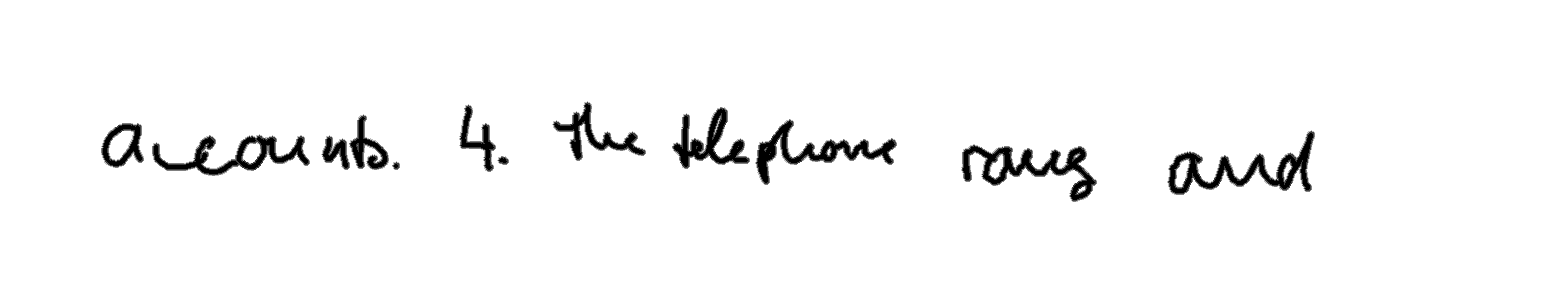 accounts. 4. the telephone rang and